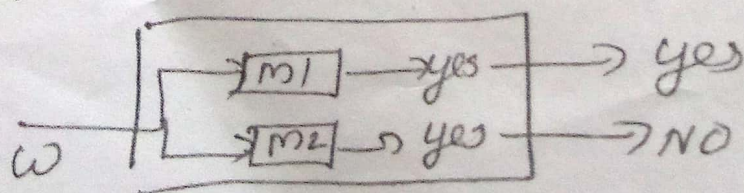 M1 yes yes
M2 yes NO
ω